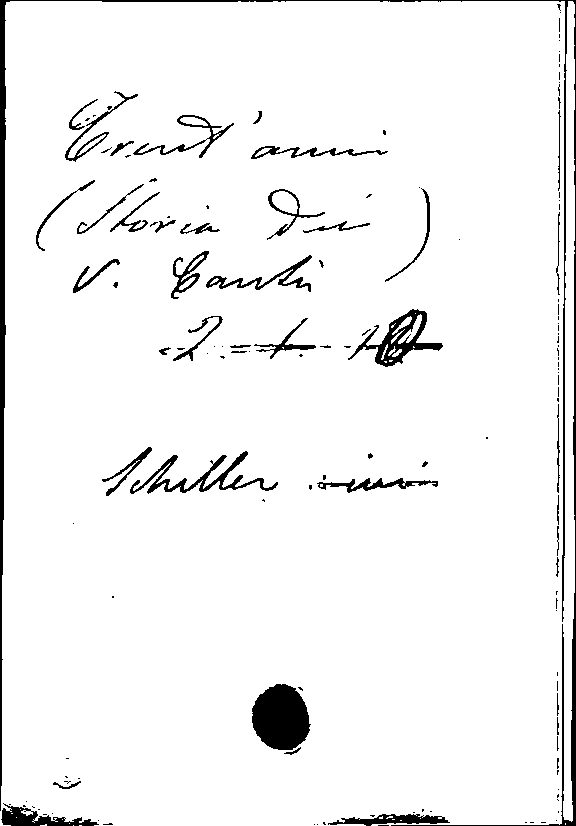 Trent'anni
(Storia dei)
V. Cantù
2 1 1
Schiller ivi